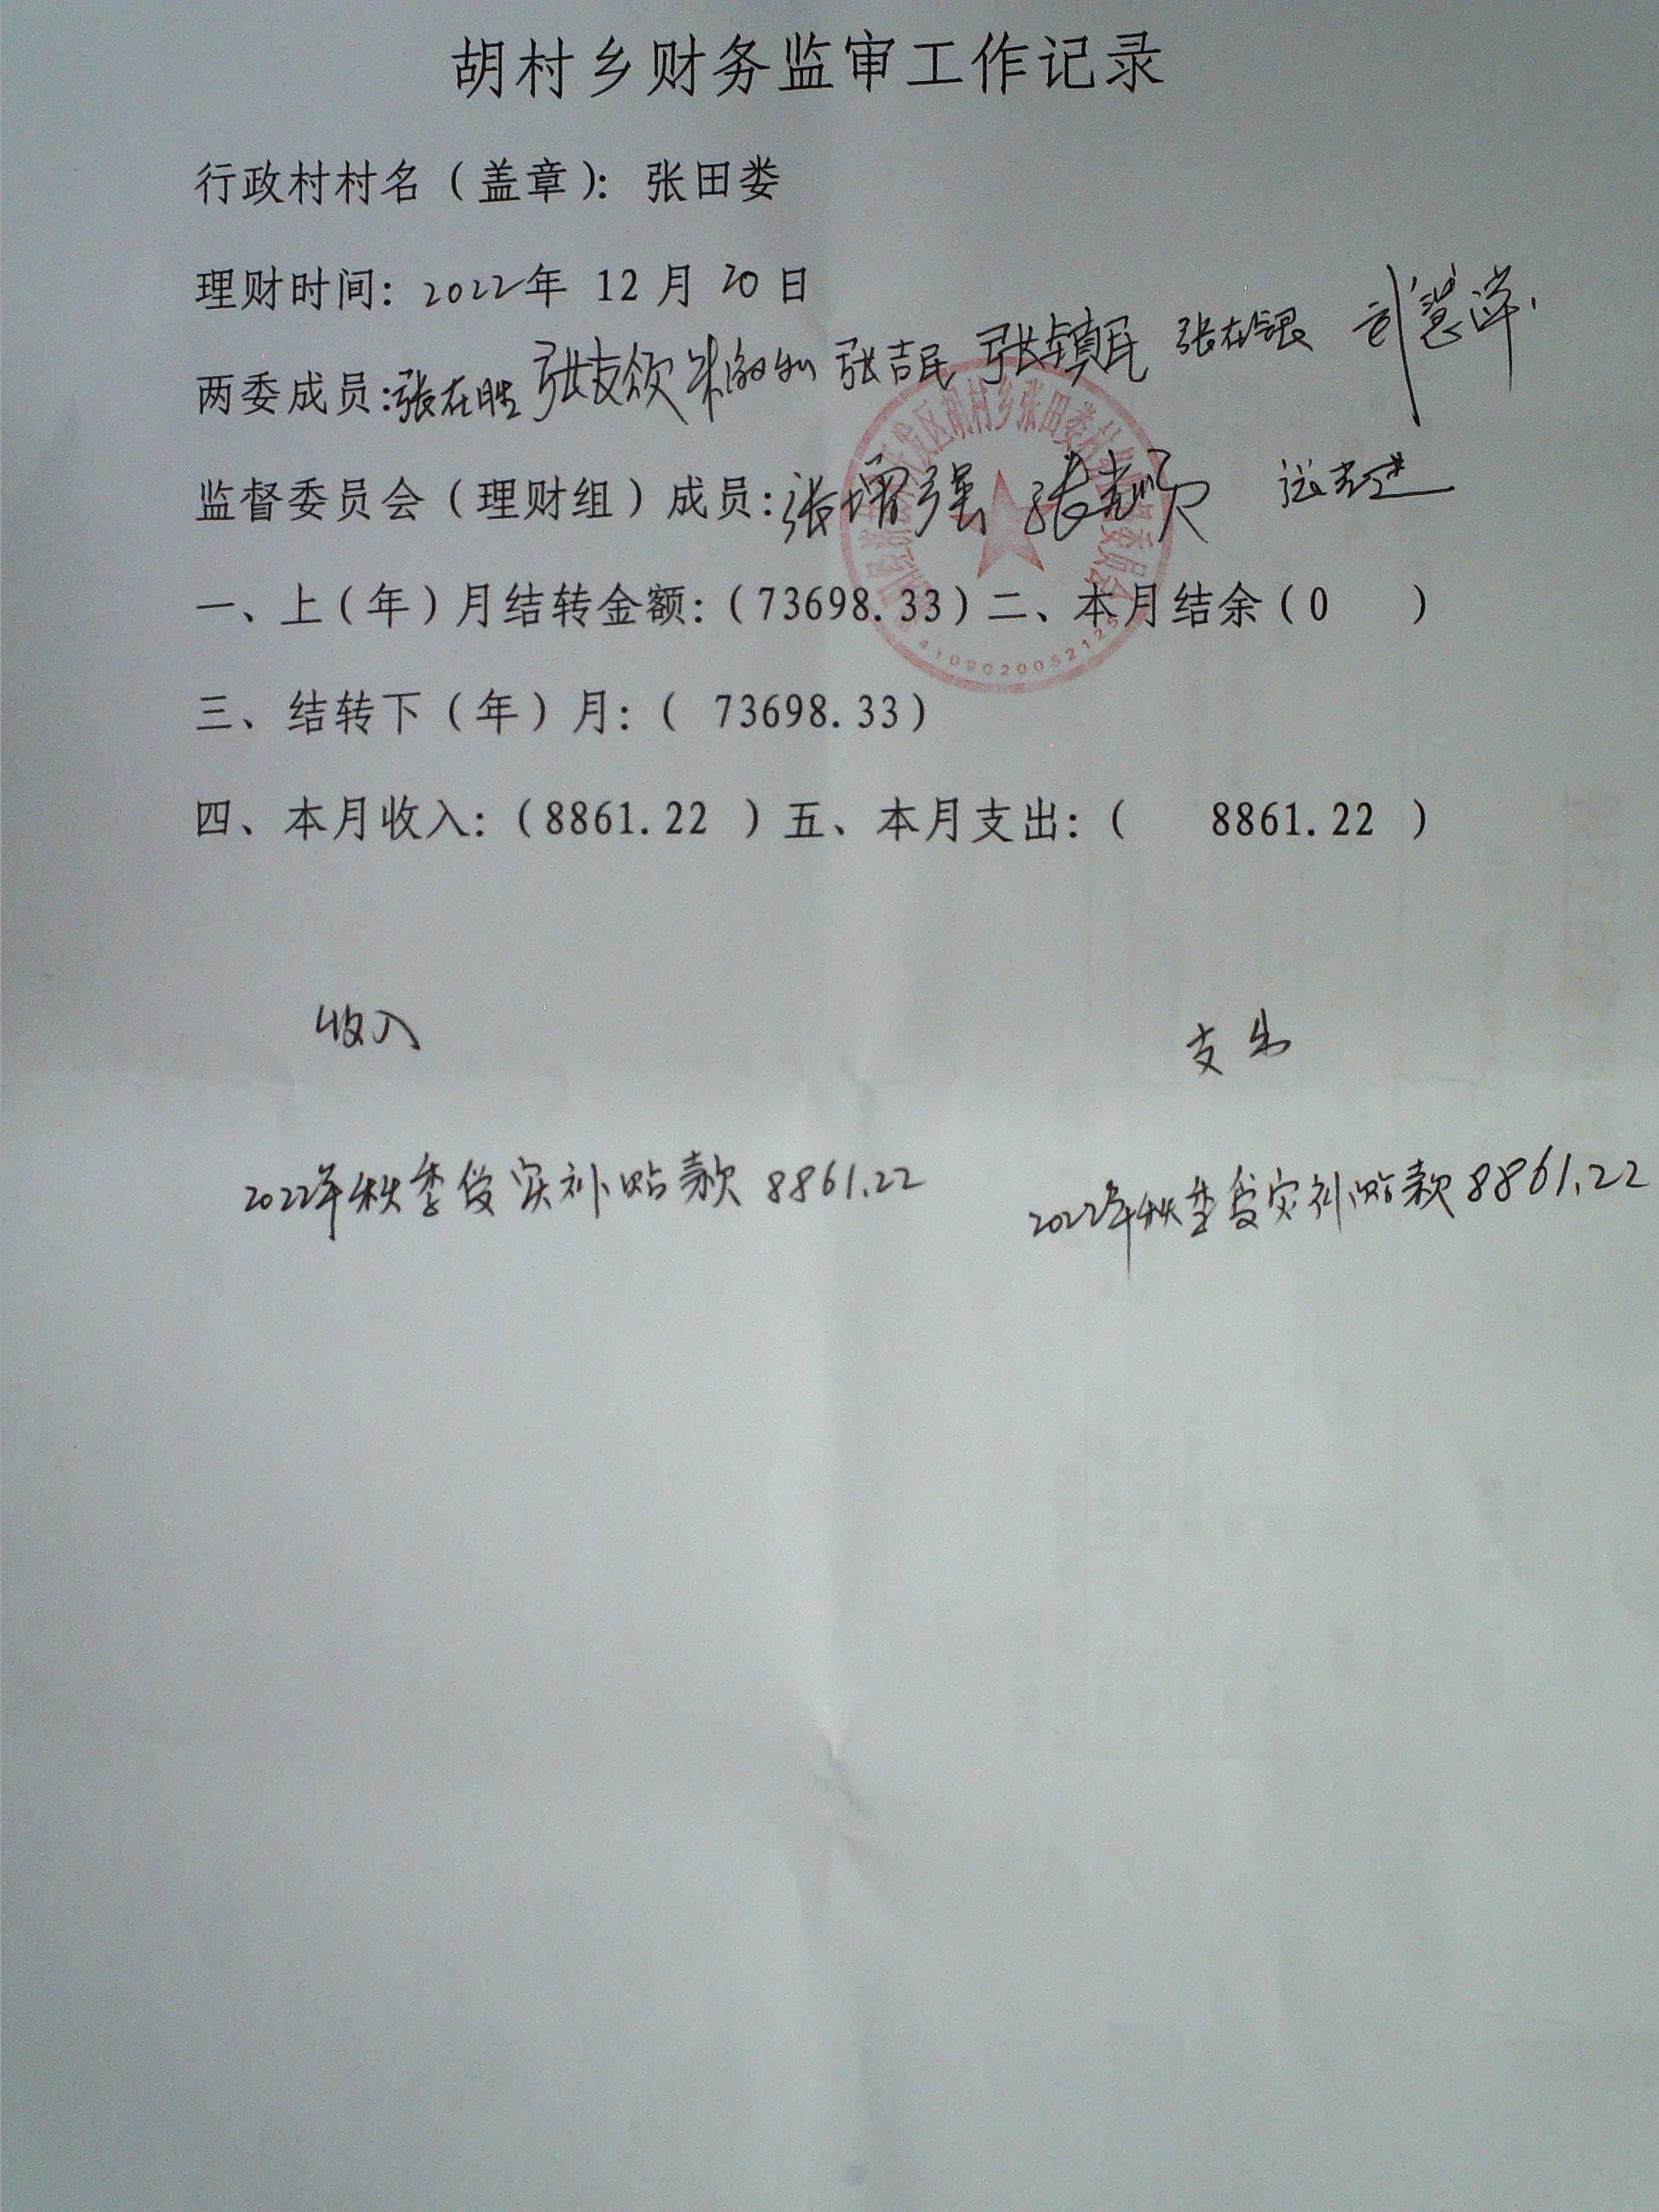 胡村乡财务监审工作记录
行政村村名（盖章）：张田娄
理财时间：2022年 12月 20日
两委成员：张在胜 张友领 张吉民 张镇民 张在银 刘慧萍
监督委员会（理财组）成员：张增强
一、上（年）月结转金额：（73698.33）二、本月结余（0 ）
三、结转下（年）月：（ 73698.33）
四、本月收入：（8861.22 ）五、本月支出：（ 8861.22 ）
收入 支出
2022年秋季 实补贴款 8861.22 2022年秋季 实补贴款 8861.22
开发区胡村乡张田娄村
4109020052125